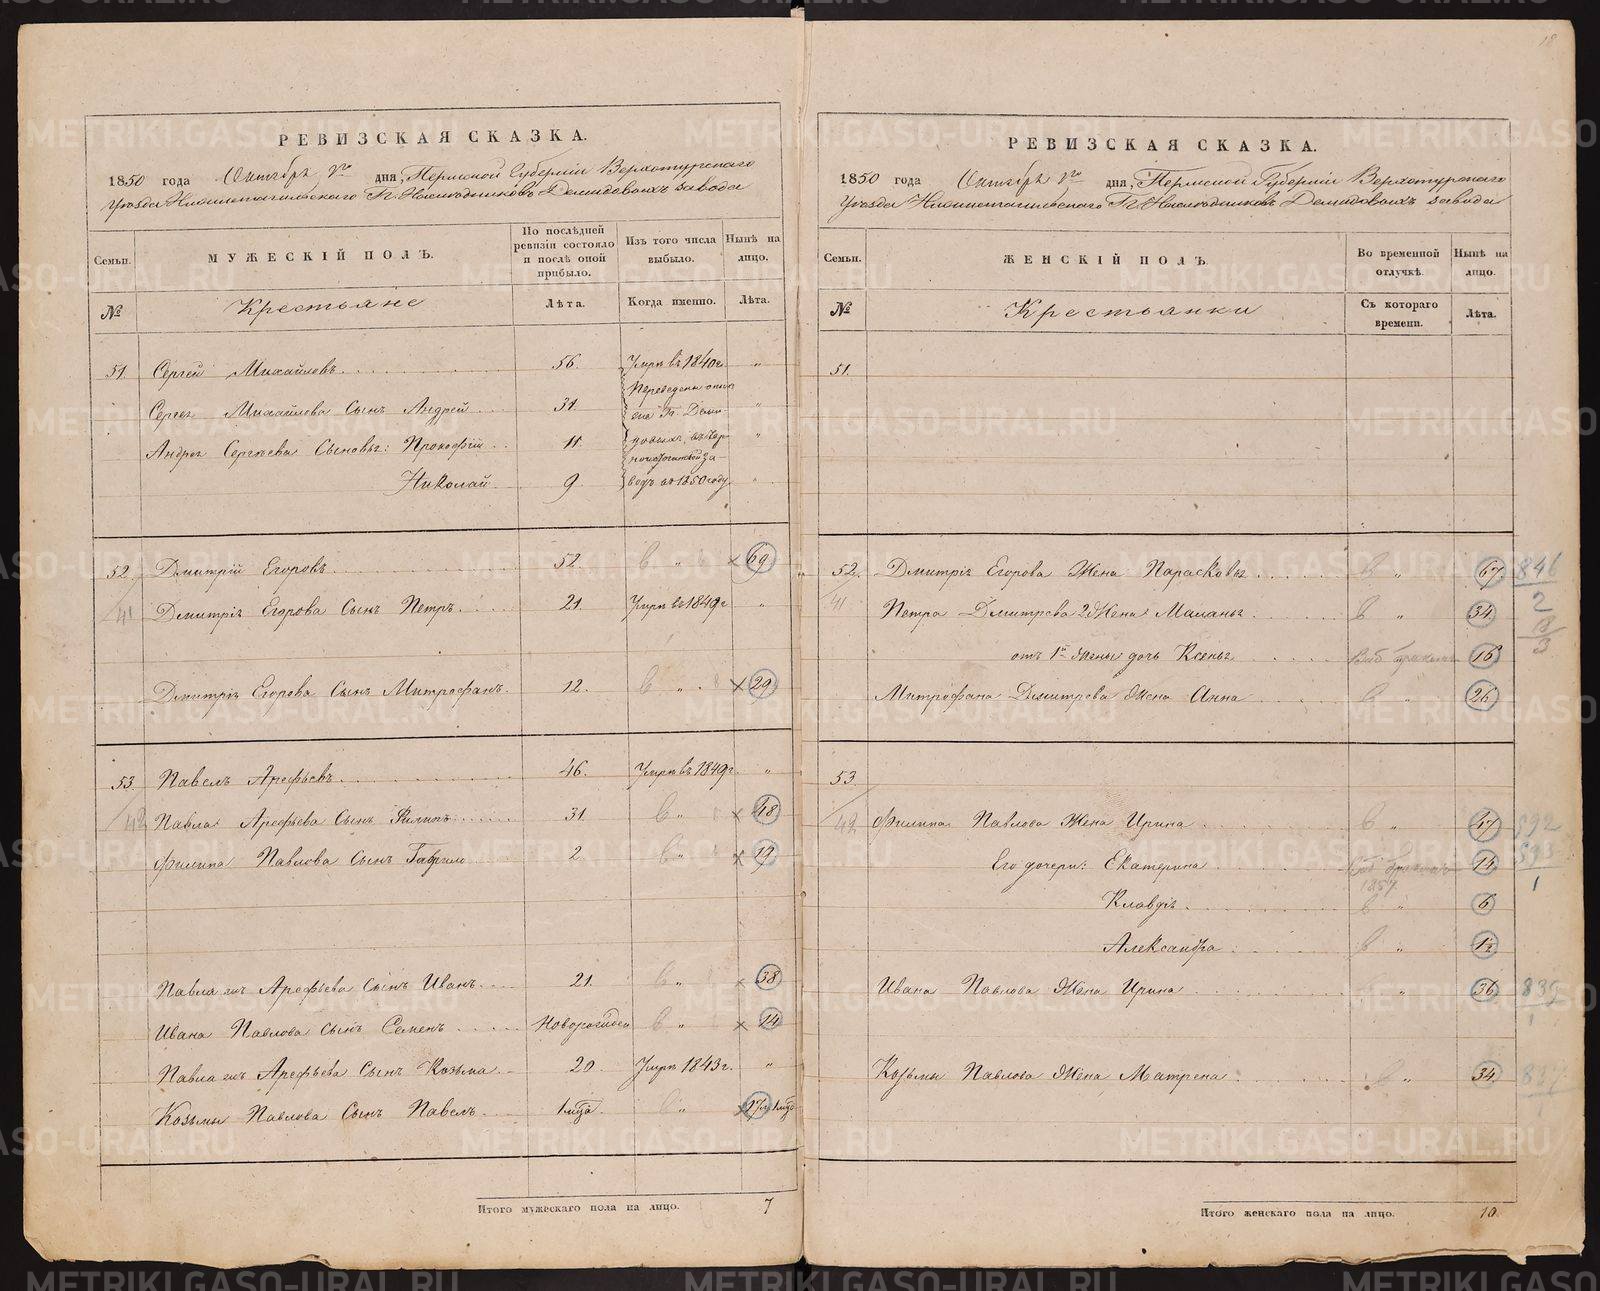 18
РЕВИЗСКАЯ СКАЗКА.
1850 года Октября дня, Пермской Губерніи Верхотурскаго
Уѣзда Нижнетагильскаго Гг. Наслѣдниковъ Демидовыхъ завода
Семьи. МУЖЕСКІЙ ПОЛЪ. По послѣдней ревизіи состояло и послѣ оной прибыло. Изъ того числа выбыло. Нынѣ на лицо.
№ Крестьяне Лѣта. Когда именно. Лѣта.
51. Сергей Михайловъ 56. Умре въ 1840г. "
Сергея Михайлова Сынъ Андрей 31. Переведены онъ "
Андрея Сергѣева Сыновья: Прокофій 11. "
Николай 9. водъ въ 1850 году "
52. Дмитрій Егоровъ 52. " × 69
41 Дмитрія Егорова Сынъ Петръ 21. Умре въ 1849г "
Дмитрія Егорова Сынъ Митрофанъ 12. " × 29
53. Павелъ Арефьевъ 46. Умре въ 1849г. "
42 Павла Арефьева Сынъ Филипъ 31. " × 48
Филипа Павлова Сынъ Гаврило 2. " × 19
Павла Арефьева Сынъ Иванъ 21. " × 38
Ивана Павлова Сынъ Семенъ Новорожден " × 14
Павла Арефьева Сынъ Козьма 20 Умре 1843г. "
Козьмы Павлова Сынъ Павелъ 1 мца. " × 17
Итого мужескаго пола на лицо. 7
РЕВИЗСКАЯ СКАЗКА.
1850 года Октября дня, Пермской Губерніи Верхотурскаго
Уѣзда Нижнетагильскаго Гг. Наслѣдниковъ Демидовыхъ завода
Семьи. ЖЕНСКІЙ ПОЛЪ. Во временной отлучкѣ. Нынѣ на лицо.
№ Крестьянки Съ котораго времени. Лѣта.
51.
52. Дмитрія Егорова Жена Парасковья " 67. 846
41 Петра Дмитрева 2 Жена Маланья " 34. 2
отъ 1й Жены дочь Ксенья 16 3
Митрофана Дмитрева Жена Анна " 26
53.
42 Филипа Павлова Жена Ирина " 47 592
Его дочери: Екатерина 14 593
1857 1
Клавдія " 6
Александра " 1½
Ивана Павлова Жена Ирина " 36
Козьмы Павлова Жена Матрена " 34
Итого женскаго пола на лицо. 10
METRIKI.GASO-URAL.RU